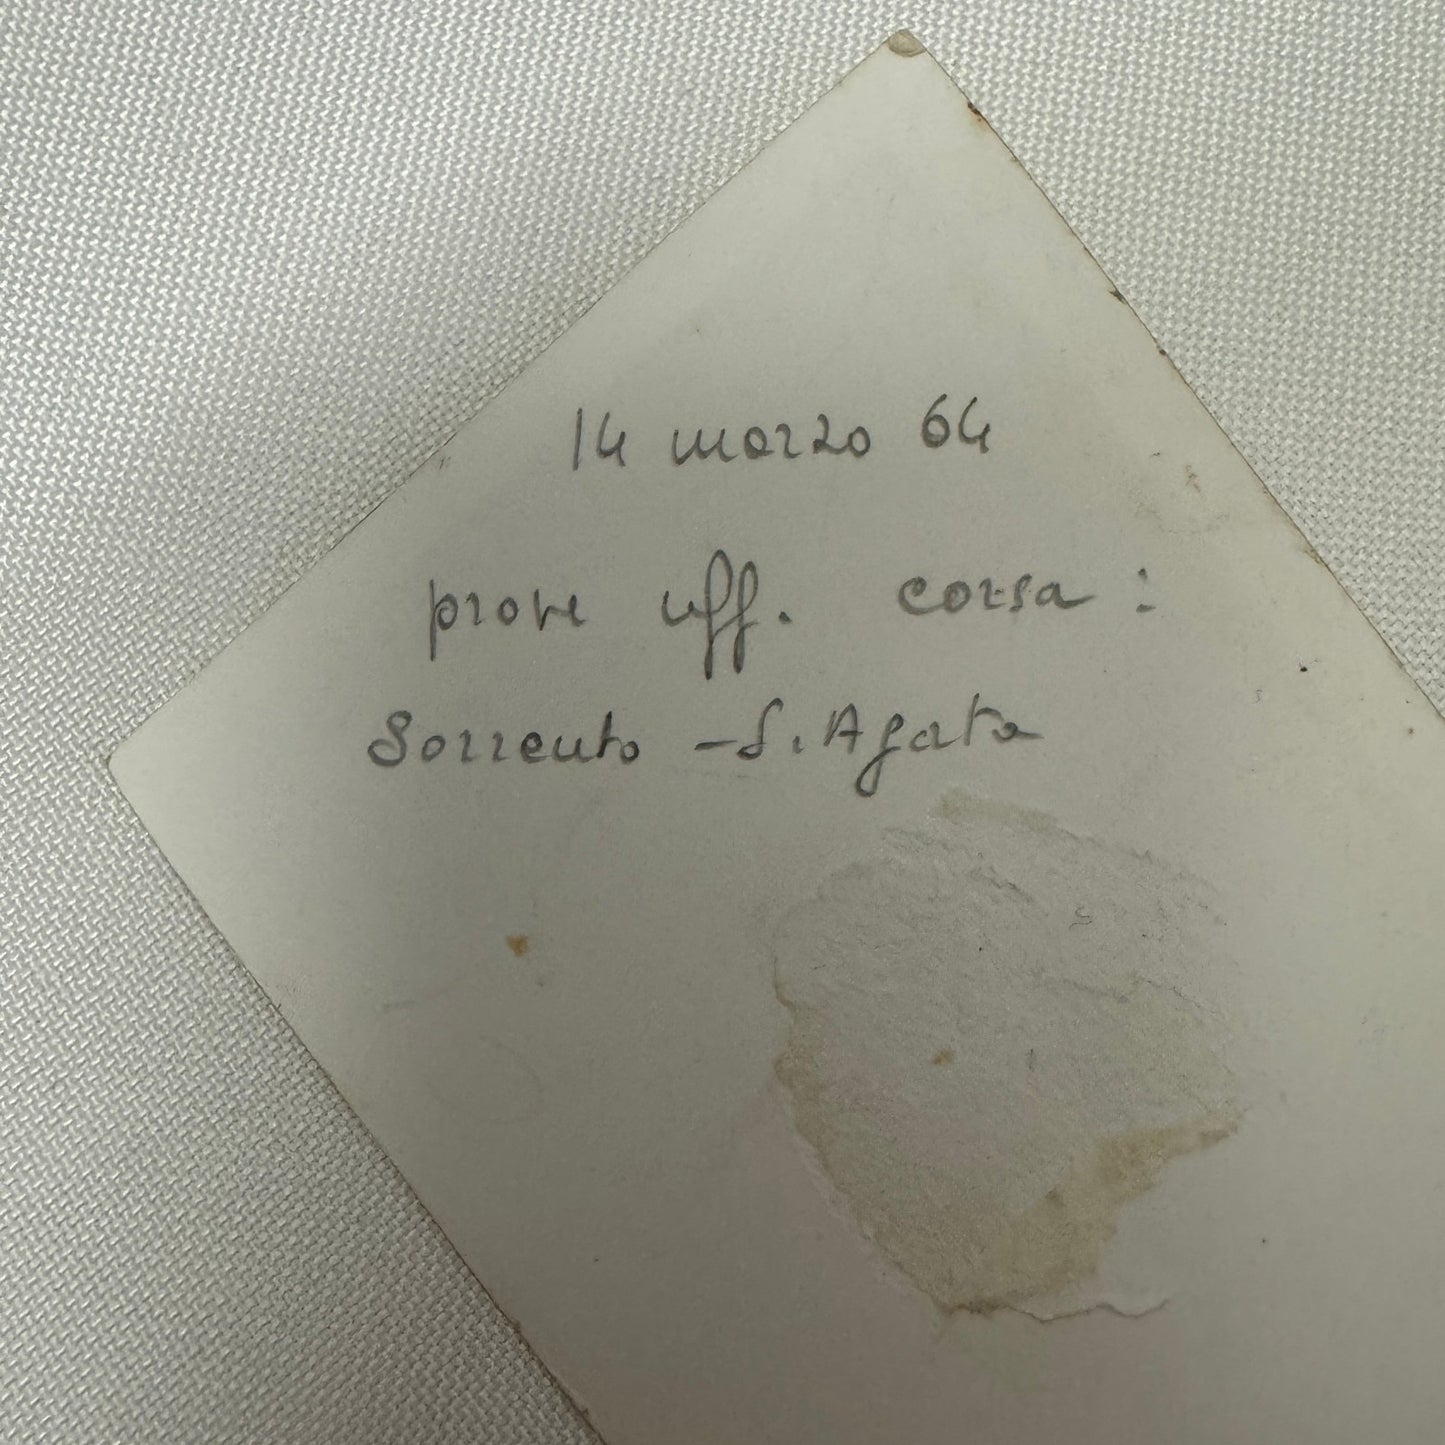 14 marzo 64
prove uff. corsa :
Sorrento - S. Agata